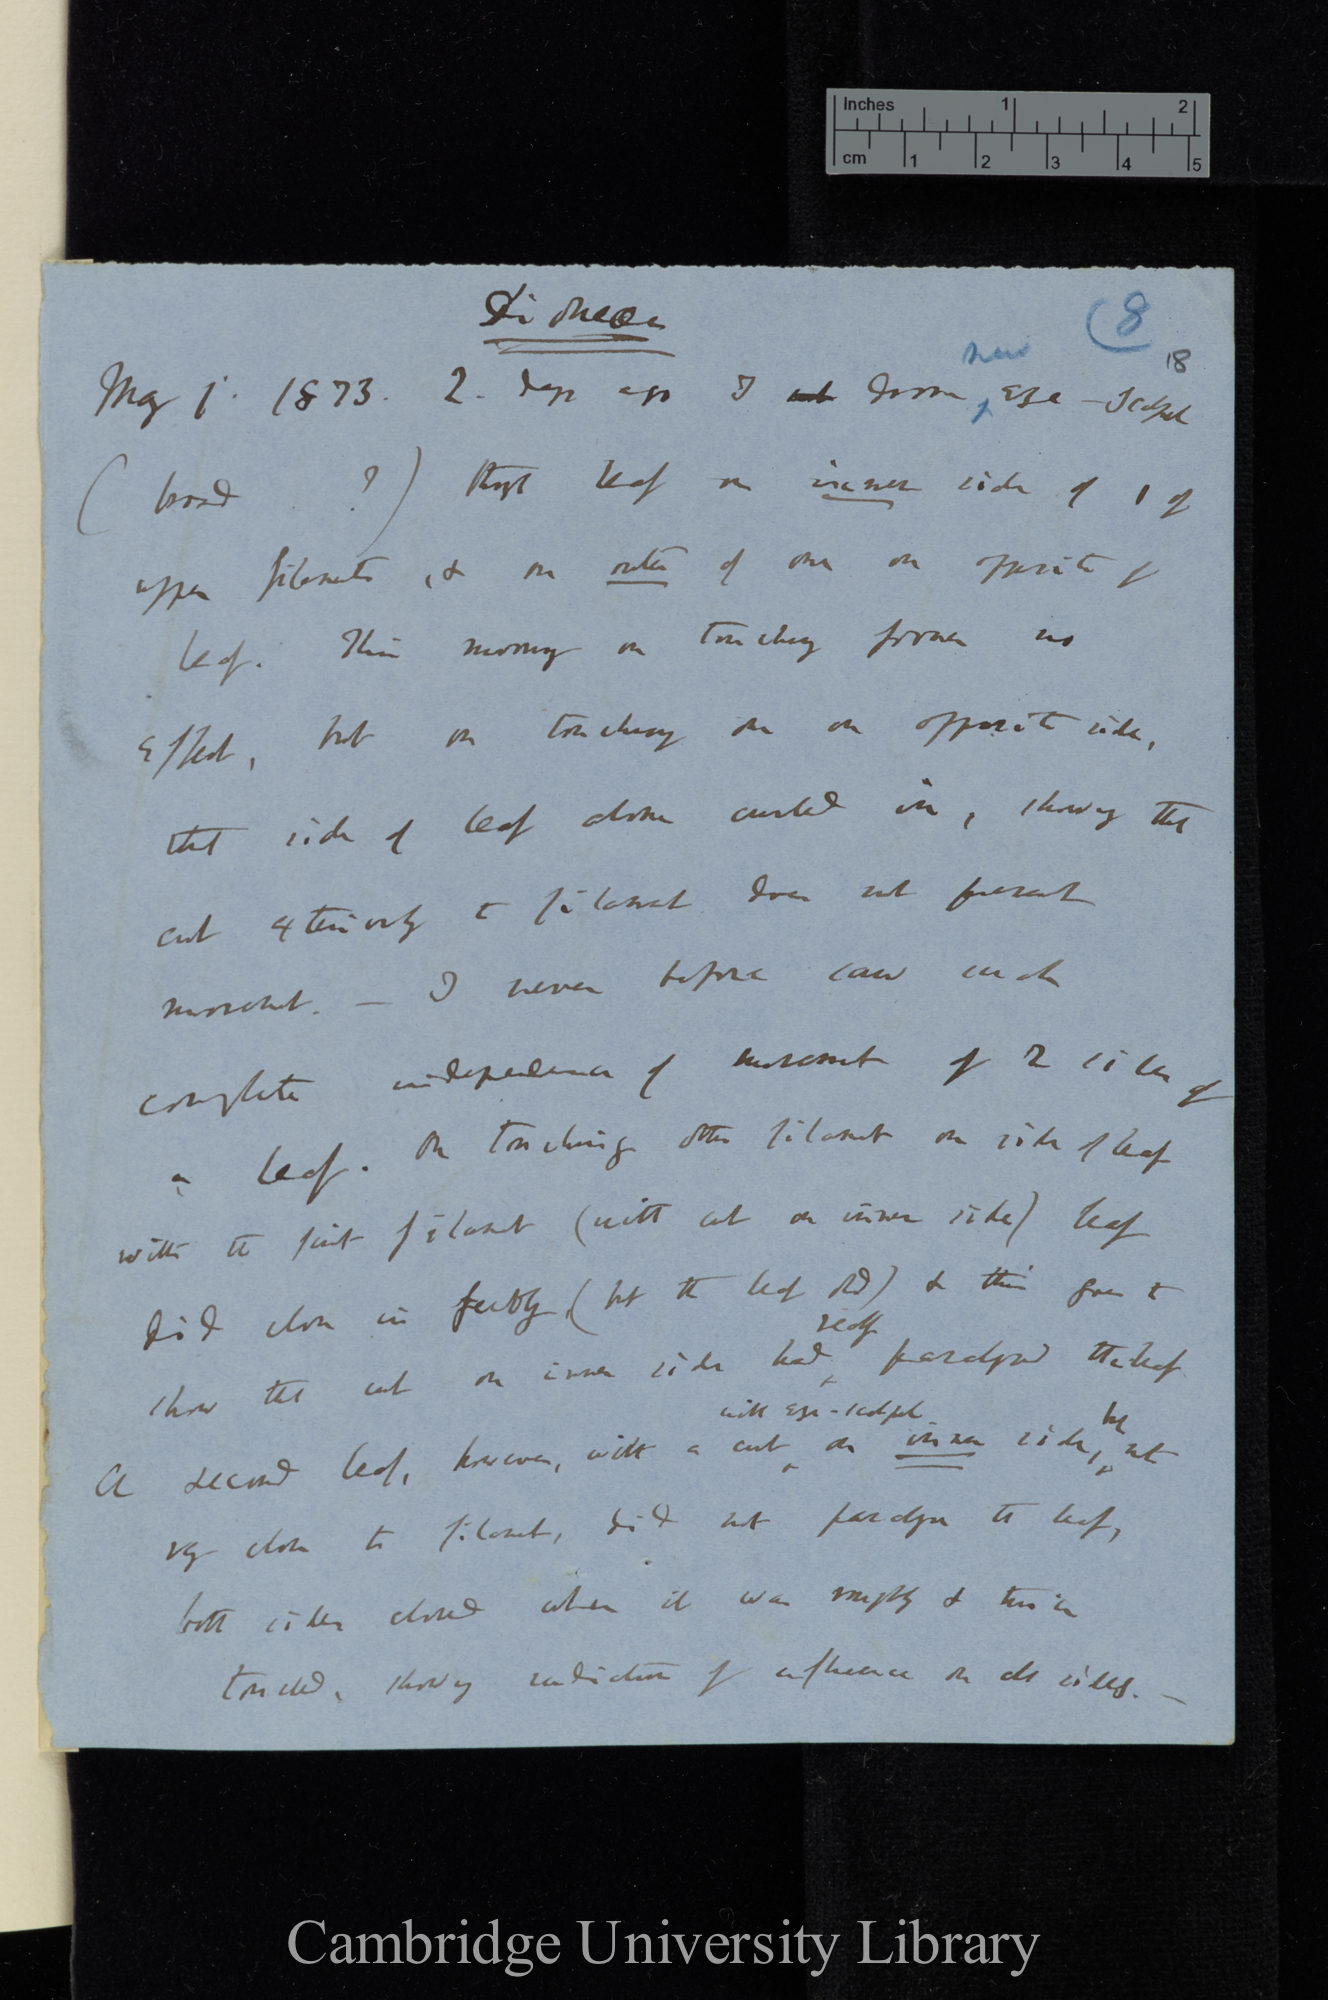 Inches 1 2
cm 1 2 3 4 5
Dionæa
(8
18
new
May 1. 1873. 2. days ago I cut down, Eye-Scalpel
(broad ?) through leaf on inner side of 1 of
upper filaments, & on outer of one on opposite of
leaf. This morning on touching former no
effect, but on touching one on opposite side,
that side of leaf alone curled in, showing that
cut exteriorly to filament does not prevent
movement. — I never before saw such
complete independence of movement of 2 sides of
a leaf. On touching other filament on side of leaf
with the first filament (with cut on inner side) leaf
did close in feebly (but the leaf old) & this goes to
really
show that cut on inner side had paralysed the leaf
with eye-scalpel but
A second leaf, however, with a cut on inner side, not
very close to filament, did not paralyse the leaf,
both sides closed when it was roughly & twice
touched, showing radiation of influence on all sides. —
Cambridge University Library